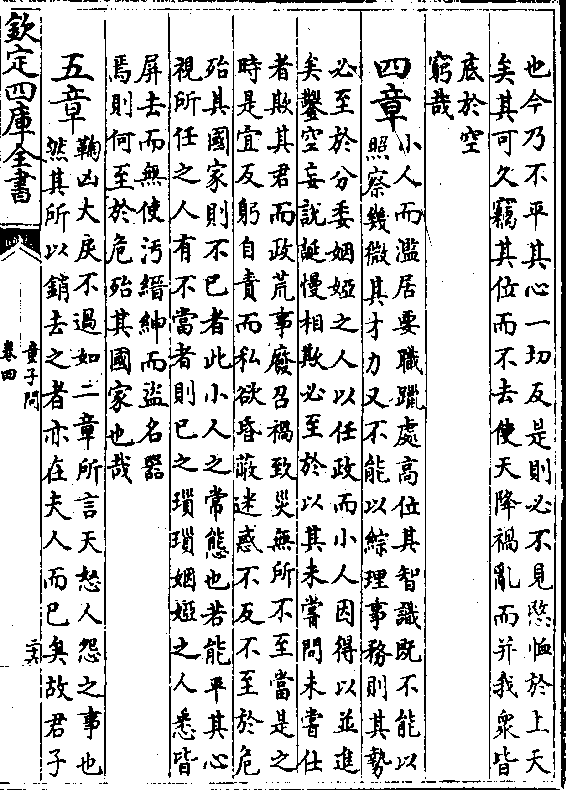 也今乃不平其心一切反是則必不見愍恤於上天
矣其可久竊其位而不去使天降禍亂而并我衆皆
底於空
窮哉
四章
小人而濫居要職躐處高位其智識既不能以
照察幾微其才力又不能以綜理事務則其勢
必至於分委姻婭之人以任政而小人因得以並進
矣鑿空妄說誕慢相欺必至於以其未嘗問未嘗仕
者欺其君而政荒事廢召禍致災無所不至當是之
時是宜反躬自責而私欲昏蔽迷惑不反不至於危
殆其國家則不已者此小人之常態也若能平其心
視所任之人有不當者則已之瑣瑣姻婭之人悉皆
屏去而無使污縉紳而盜名器
焉則何至於危殆其國家也哉
五章
鞠凶大戾不過如二章所言天怒人怨之事也
然其所以銷去之者亦在夫人而已矣故君子
欽定四庫全書
童子問
卷四